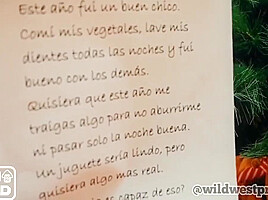 Este año fui un buen chico.
Comí mis vegetales, lave mis
dientes todas las noches y fui
bueno con los demás.
Quisiera que este año me
traigas algo para no aburrirme
ni pasar solo la noche buena.
Un juguete sería lindo, pero
quisiera algo mas real.
es capaz de eso?
@wildwestpr